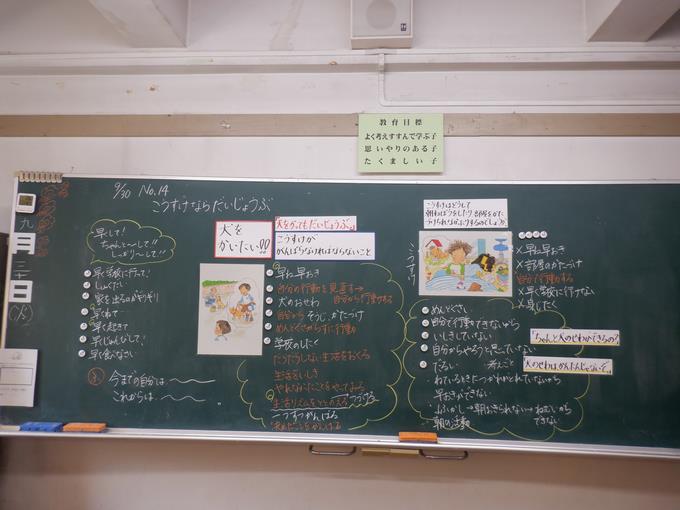 教育目標
よく考えすすんで学ぶ子
思いやりのある子
たくましい子
9/30 No.14
こうすけならだいじょうぶ
九
月
三十
日
(火)
早くて!
ちゃんと〜して!!
しっかり〜して!!
早く学校に行って!
しゅくだい
家を出るのがギリギリ
早くねて
早く起きて
早くじゅんびして!
早く食べなさい
今までの自分は
これからは
犬を
かいたい!!
「犬をかってもだいじょうぶ。」
こうすけが
がんばらなければならないこと
早ね早おき
自分の行動を見直す→
自分から行動する
犬のおせわ
自分からそうじ、かたづけ
めんどくさがらずに行動
学校のしたく
だらだらしない生活をおくる
生活をいしき
やれなかったことをやってみる
生活リズムをととのえる つづける
こつこつがんばる
決めたことをがんばる
こうすけはどうして
こうすけ
早ね早おき
部屋のかたづけ
自分で行動する
早く学校に行けない
身じたく
めんどくさい
自分で行動できないから
いしきしていない
自分からやろうと思っていない
だるい 考えごと
早おきができない
よふかし→朝おきられない→ねむいから
朝の活動 できない
「ちゃんと犬のせわができるの?」
「犬のせわはかんたんじゃないぞ。」